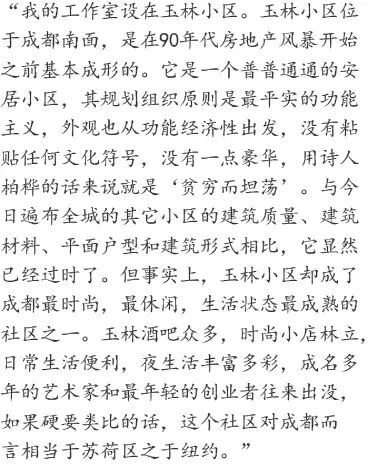 “我的工作室设在玉林小区。玉林小区位
于成都南面，是在90年代房地产风暴开始
之前基本成形的。它是一个普普通通的安
居小区，其规划组织原则是最平实的功能
主义，外观也从功能经济性出发，没有粘
贴任何文化符号，没有一点豪华，用诗人
柏桦的话来说就是‘贫穷而坦荡’。与今
日遍布全城的其它小区的建筑质量、建筑
材料、平面户型和建筑形式相比，它显然
已经过时了。但事实上，玉林小区却成了
成都最时尚，最休闲，生活状态最成熟的
社区之一。玉林酒吧众多，时尚小店林立，
日常生活便利，夜生活丰富多彩，成名多
年的艺术家和最年轻的创业者往来出没，
如果硬要类比的话，这个社区对成都而
言相当于苏荷区之于纽约。”